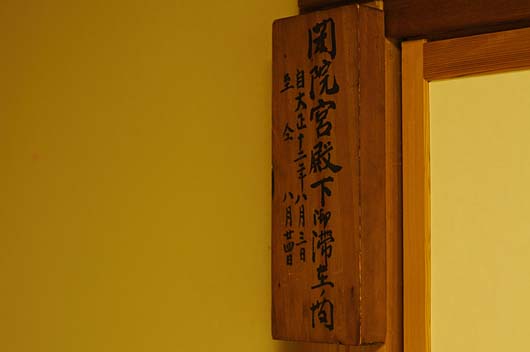 閑院宮殿下御滞在ノ間
自大正十二年八月三日
至仝 八月廿四日